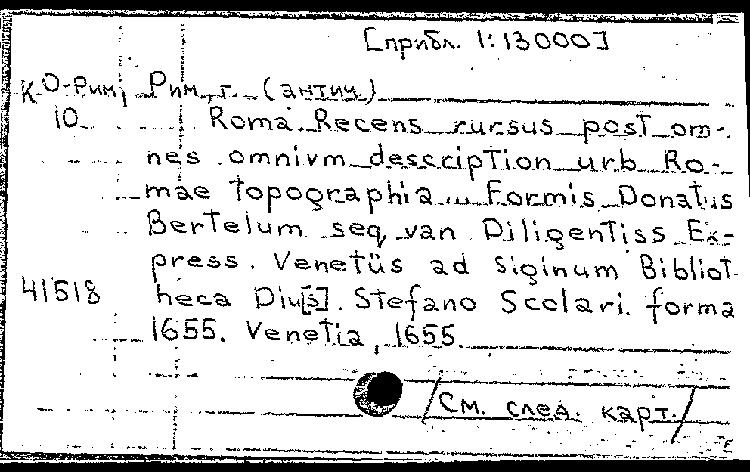 [прибл. 1:13000]
К О-Рим, Рим, г. (антич.)
10 Roma Recens rursus post om-
nes omnivm descciption urb Ro-
mae topographia... Formis Donatus
Bertelum seq van Diligentiss Ex-
press. Venetüs ad siginum Bibliot-
41518 heca Diu[s]. Stefano Scolari forma
1655. Venetia, 1655.
/См. след. карт./